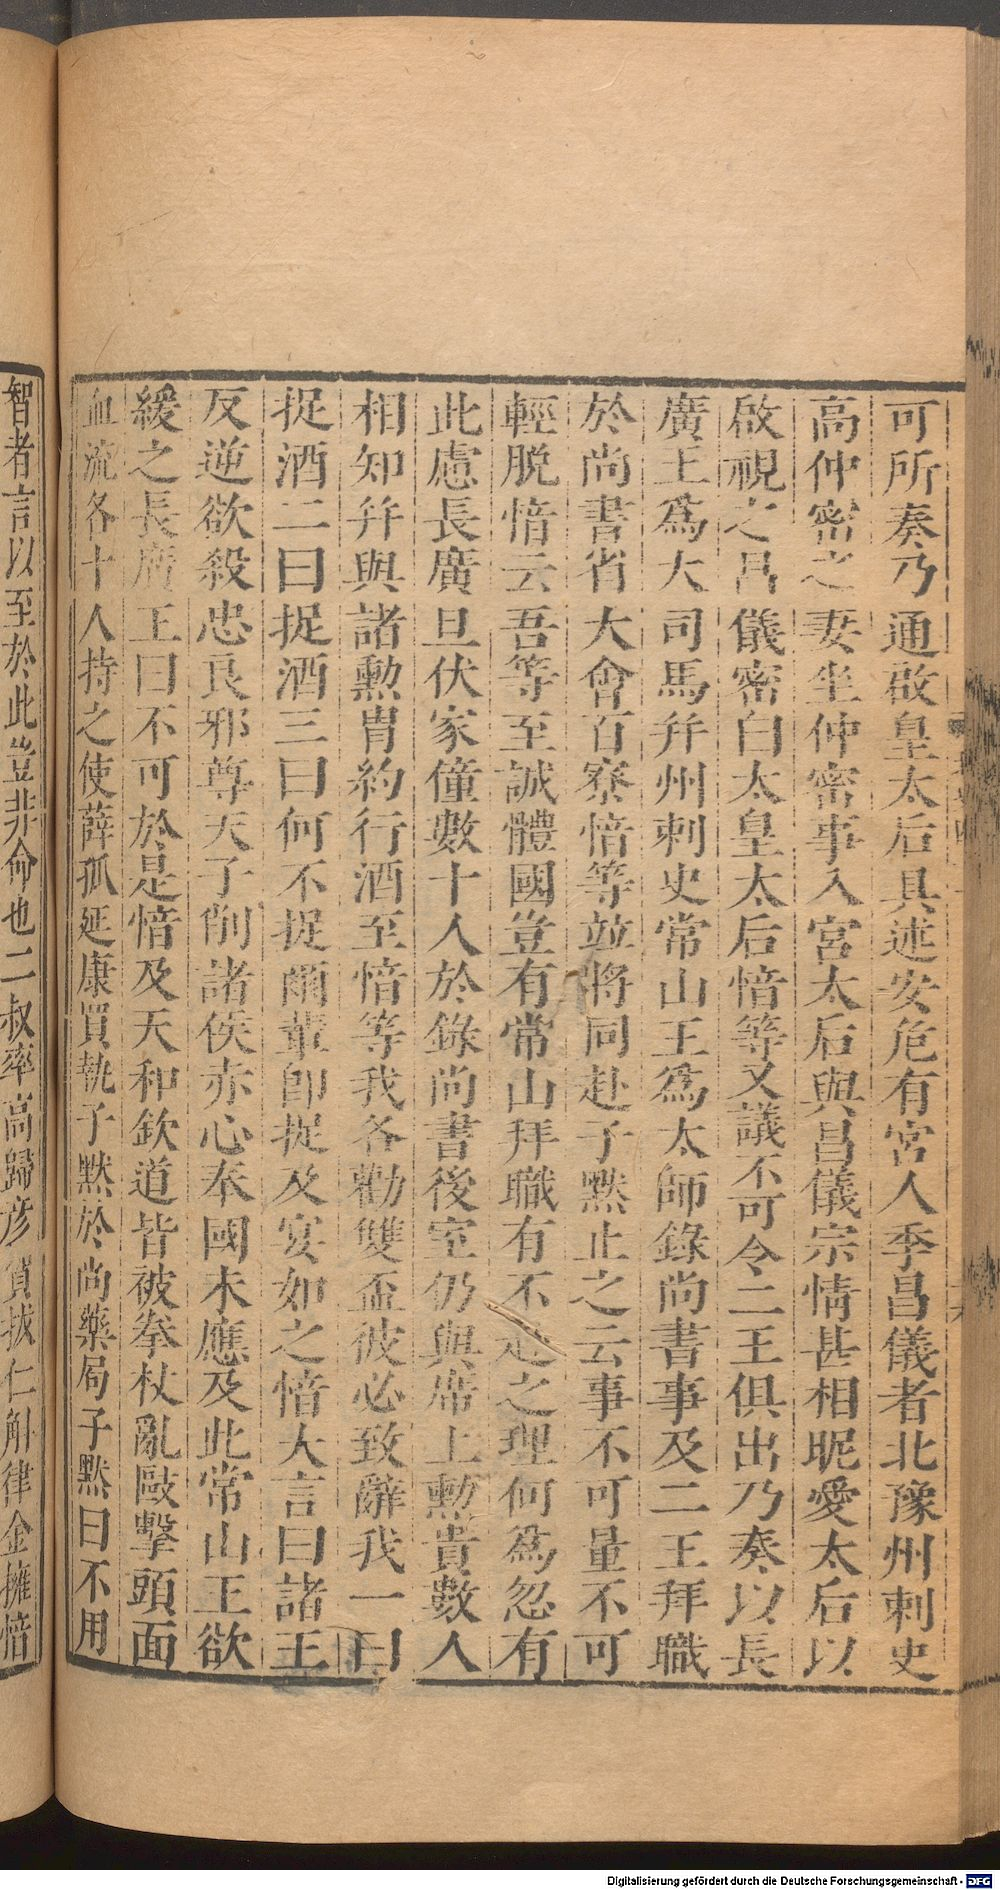 可所奏乃通啟皇太后具述安危有宮人李昌儀者北豫州刺史
高仲密之妻坐仲密事入宮太后與昌儀宗情甚相昵愛太后以
啟視之昌儀密白太皇太后愔等又議不可令二王俱出乃奏以長
廣王爲大司馬并州刺史常山王爲太師錄尚書事及二王拜職
於尚書省大會百寮愔等並將同赴子默止之云事不可量不可
輕脫愔云吾等至誠體國豈有常山拜職有不赴之理何爲忽有
此慮長廣旦伏家僮數十人於錄尚書後室仍與席上勳貴數人
相知并與諸勳胄約行酒至愔等我各勸雙盃彼必致辭我一曰
捉酒二曰捉酒三曰何不捉爾輩即捉及宴如之愔大言曰諸王
反逆欲殺忠良邪尊天子削諸侯赤心奉國未應及此常山王欲
緩之長廣王曰不可於是愔及天和欽道皆被拳杖亂毆擊頭面
血流各十人持之使薛孤延康買執子默於尚藥局子默曰不用
智者言以至於此豈非命也二叔率高歸彥賀拔仁斛律金擁愔
Digitalisierung gefördert durch die Deutsche Forschungsgemeinschaft - DFG